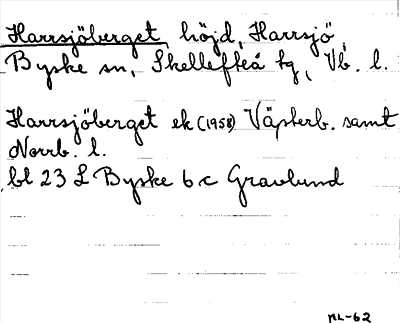 Harrsjöberget, höjd, Harrsjö,
Byske sn, Skellefteå tg, Vb. l.
Harrsjöberget ek (1958) Västerb. samt
Norrb. l.
bl 23 L Byske 6 c Gravlund
ML-62